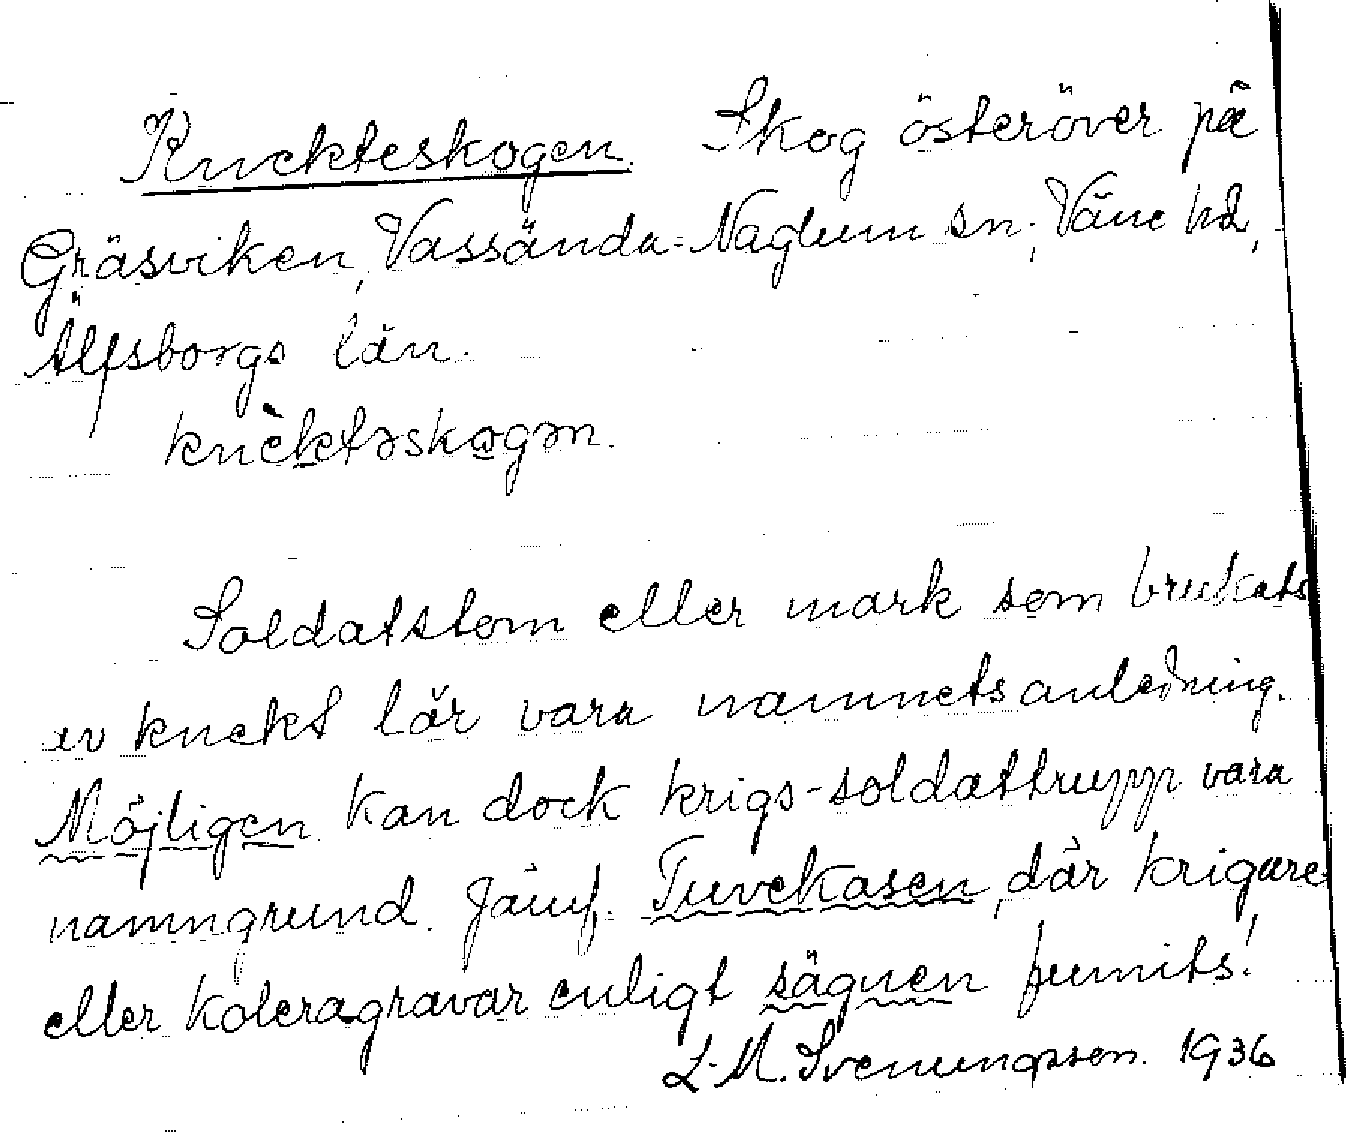 Knekteskogen. Skog österöver på
Gräsviken, Vassända-Naglum sn, Väne hd,
Älfsborgs län.
knèktəskogən.
Soldatstom eller mark som brukats
av knekt lär vara namnets anledning.
Möjligen kan dock krigs-soldattrupp vara
namngrund. Jämf. Tuvekasen, där krigare
eller koleragravar enligt sägnen funnits!
L. M. Svenungsson. 1936